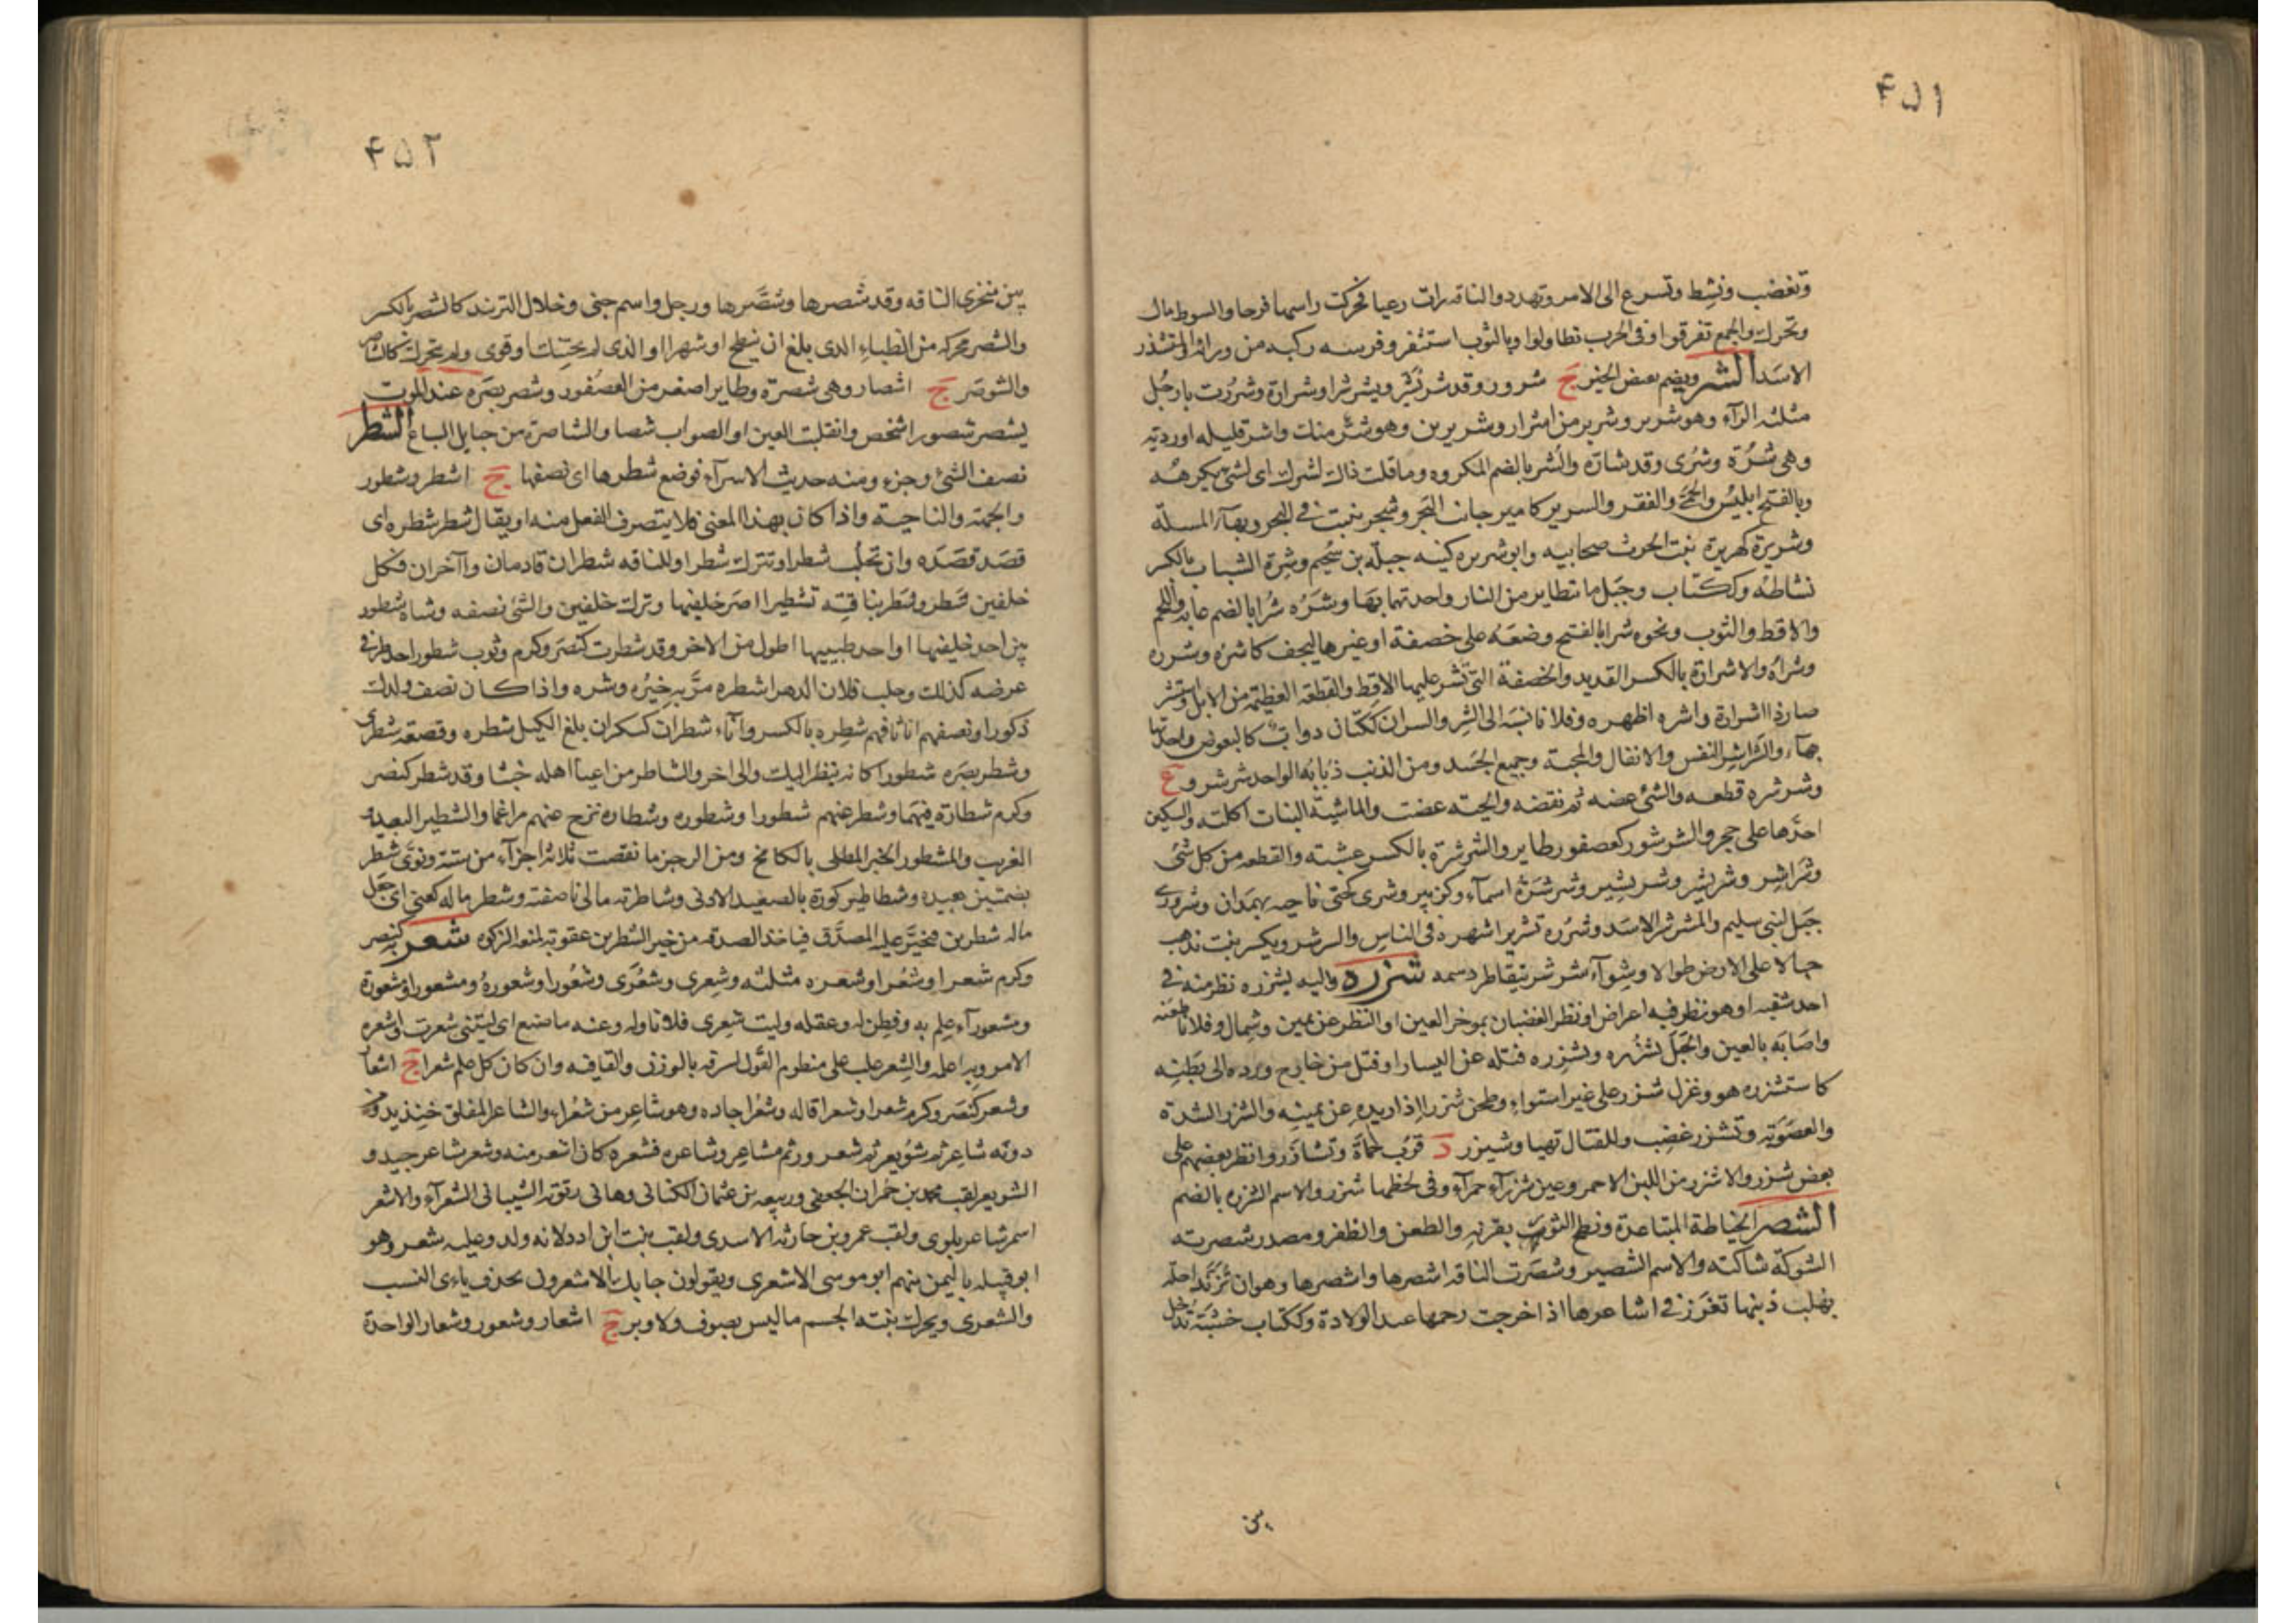 ۴۵۱
وتغضب ونشط وتسرع الى الامر وتهدد والناقه رات رعيا فحركت راسها فرحا والسوط مال
وتحرك والجمع تفرقوا وفى الحرب تطاولوا وبالثوب استثفر وفرسه ركبه من ورائه والمتشذر
الاسد الشر ويضم نقيض الخير ج شرور وقد شر يشر ويشر شرا وشرارة وشررت يا رجل
مثلثه الرآء وهو شرير وشرير من اشرار وشريرين وهو شر منك واشر قليله او رديه
وهى شرة وشرى وقد شاره والشر بالضم المكروه وما قلت ذاك لشرك اى لشئ تكرهه
وبالفتح ابليس والحمى والفقر والسرير كامير جانب البحر وشجر ينبت فى البحر وبهآء المسلة
وشريرة كهريرة بنت الحرث صحابيه وابو شريره كنيه جبلة بن سحيم وشرة الشباب بالكسر
نشاطه وككتاب وجبل ما تطاير من النار واحدتهما بهآ وشره شرا بالضم عابه واللحم
والاقط والثوب ونحوه شرا بالفتح وضعه على خصفة او غيرها ليجف كاشره وشرره
وشراه والاشرارة بالكسر القديد والخصفة التى يشر عليها الاقط والقطعه العظيمة من الابل واستشر
صار ذا اشرارة واشره اظهره وفلانا نسبه الى الشر والشران ككتان دواب كالبعوض واحدتها
بهآء والشراشر النفس والاثقال والمحبة وجميع الجسد ومن الذنب ذباذبه الواحد شرشرو ع
وشرشره قطعه والشئ عضه ثم نفضه والحية عضت والماشية النبات اكلته والسكين
احدها على حجر والشرشور كعصفور طاير والشرشرة بالكسر عشبته والقطعه من كل شئ
وشراشر وشريشر وشرشير وشرشرة اسمآء وكزبير وشرى كحتى ناحيه بهمدان وشرورى
جبل لبنى سليم والمشرشر الاسد وشرره تشريرا شهره فى الناس والشرشر ويكسر نبت يذهب
حبالا على الارض طولا وشوآء شرشر يتقاطر دسمه شزره واليه يشزره نظر منه فى
احد شقيه او هو نظر فيه اعراض او نظر الغضبان بموخر العين او النظر عن يمين وشمال وفلانا طعنه
واصابه بالعين والحبل يشزره ويشزره فتله عن اليسار او فتل من خارج ورده الى بطنه
كاستشزره هو وغزل شزر على غير استواء وطحن شزرا اذا ادار يده عن يمينه والشزر الشدة
والصعوبة وتشزر غضب وللقتال تهيا وشيزر د قرب حماة وتشازروا نظر بعضهم على
بعض شزر والاشزر من اللبن الاحمر وعين شزرآء حمرآء وفى لحظها شزر والاسم الشزره بالضم
الشصر الخياطة المتباعدة ونطح الثور بقرنه والطعن والظفر ومصدر شصرته
الشوكة شاكته والاسم الشصير وشصرت الناقه اشصرها واشصرها وهو ان تزند اخله
بهلب ذنبها تغرز فى اشاعرها اذا خرجت رحمها عند الولادة وككتاب خشبة تدخل
بين
۴۵۲
بين منخرى الناقه وقد شصرها وشصرها ورجل واسم جنى وخلال التزند كالشصر بالكسر
والشصر محركه من الظباء الذى بلغ ان ينطح او شهرا او الذى لم يحتنك او قوى ولم يتحرك كالشاصر
والشوصر ج اشصار وهى شصرة وطاير اصغر من العصفور وشصر بصره عند الموت
يشصر شصورا شخص وانقلبت العين او الصواب شصا والشاصرة من حبايل السباع الشطر
نصف الشئ وجزءه ومنه حديث الاسرآء فوضع شطرها اى نصفها ج اشطر وشطور
والجهة والناحية واذا كان بهذا المعنى فلا يتصرف الفعل منه او يقال شطر شطره اى
قصد قصده وان تحلب شطرا وتترك شطرا وللناقه شطران قادمان وآخران فكل
خلفين شطر وشطر بناقته تشطيرا صر خلفيها وترك خلفين والشئ نصفه وشاة شطور
بين احد خلفيها او احد طبييها اطول من الاخر وقد شطرت كنصر وكرم وثوب شطور احد طرفى
عرضه كذلك وحلب فلان الدهر اشطره مر به خيره وشره واذا كان نصف ولدك
ذكورا ونصفهم اناثا فهم شطره بالكسر واناء شطران كسكران بلغ الكيل شطره وقصعة شطرى
وشطر بصره شطورا كانه ينظر اليك والى اخر والشاطر من اعيا اهله خبثا وقد شطر كنصر
وكرم شطارة فيهما وشطر عنهم شطورا وشطوره وشطاره نزح عنهم مراغما والشطير البعيد
الغريب والمشطور الخبز المطلى بالكامخ ومن الرجز ما نقصت ثلاثة اجزآء من ستة ونوى شطر
بضمتين بعيده وشطاطير كورة بالصعيد الادنى وشاطرته مالى ناصفته وشطر ماله كعنى اى جعل
ماله شطرين فتخير عليه المصدق فياخذ الصدقه من خير الشطرين عقوبة لمنعه الزكوه شعر به كنصر
وكرم شعرا وشعرا وشعره مثلثه وشعرى وشعرى وشعورا وشعوره ومشعورا ومشعورة
ومشعورآء علم به وفطن له وعقله وليت شعرى فلانا وله وعنه ما صنع اى ليتنى شعرت واشعره
الامر وبه اعلمه والشعر غلب على منظوم القول لشرفه بالوزن والقافيه وان كان كل علم شعرا ج اشعار
وشعر كنصر وكرم شعرا وشعرا قاله وشعر اجاده وهو شاعر من شعراء والشاعر المفلق خنذيد ومن
دونه شاعر ثم شويعر ثم شعرور ثم متشاعر وشاعره فشعره كان اشعر منه وشعر شاعر جيد و
الشويعر لقب محمد بن حمران الجعفى وربيعه بن عثمان الكنانى وهانى بن توبة الشيبانى الشعرآء والاشعر
اسم شاعر بلوى ولقب عمرو بن حارثه الاسدى ولقب نبت ابن ادد لانه ولد وعليه شعر وهو
ابو قبيله باليمن منهم ابو موسى الاشعرى ويقولون جاءتك الاشعرون بحذف ياءى النسب
والشعرى ويحرك نبتة الجسم ما ليس بصوف ولا وبر ج اشعار وشعور وشعار الواحدة